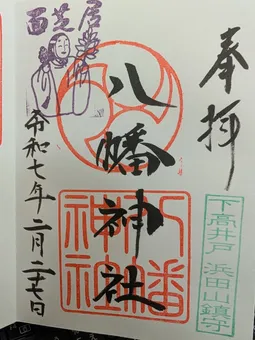 奉拝
下高井戸 浜田山鎮守
八幡神社
八幡
神社
西芝居
令和七年二月二十七日